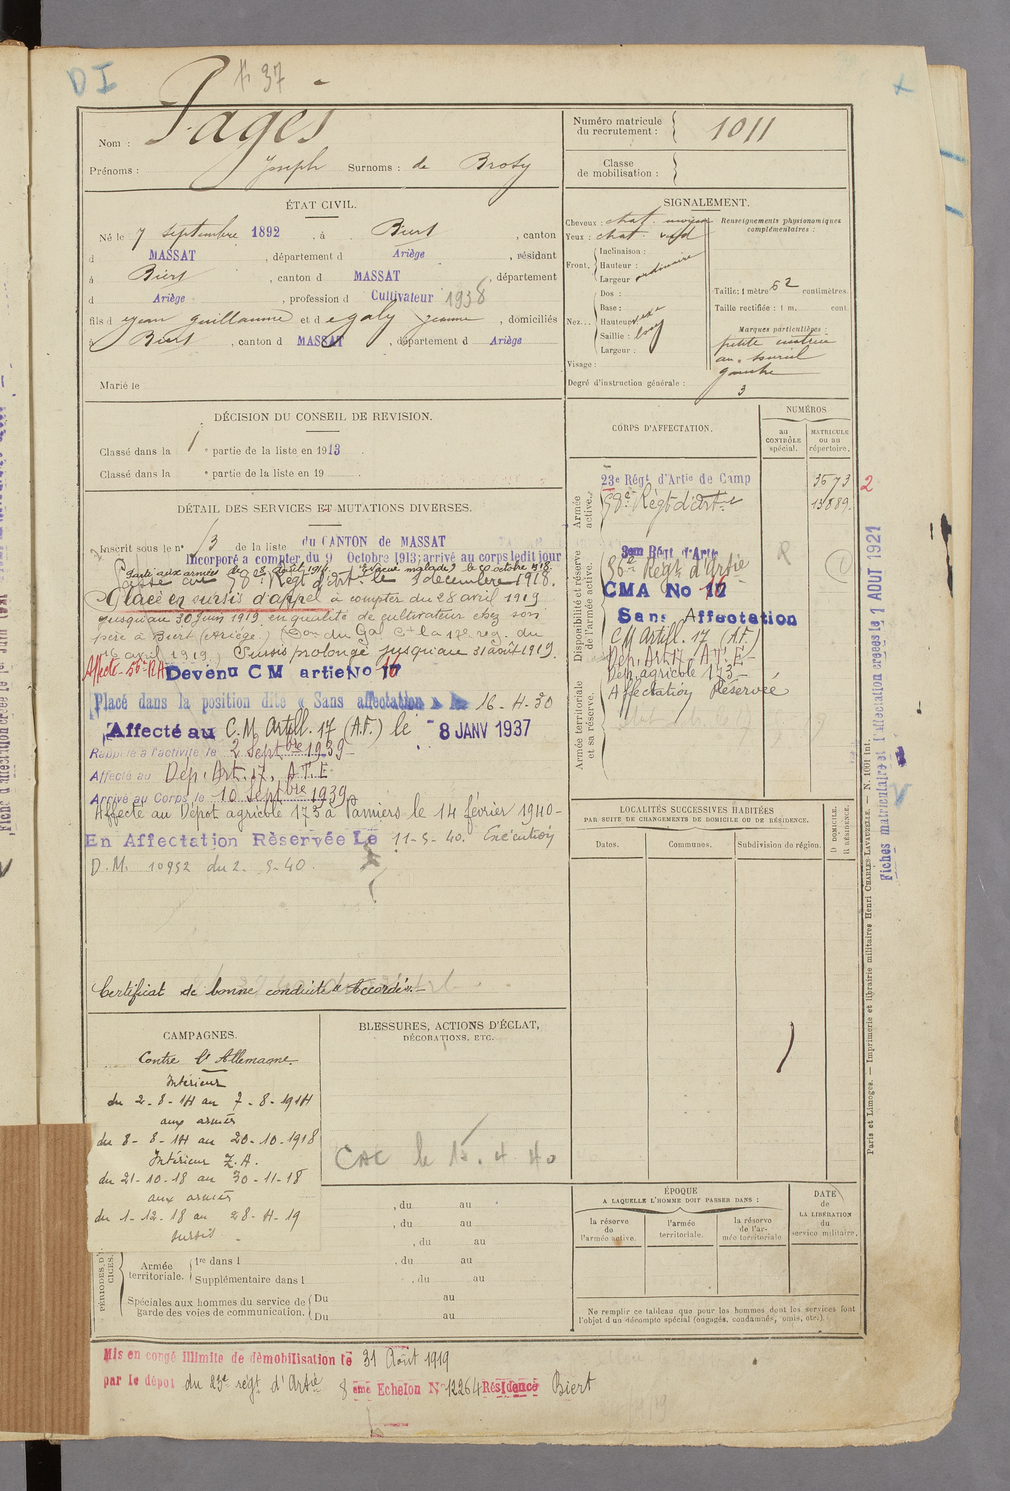 D I
N 37
Nom : Pagès
Prénoms : Joseph Surnoms : de Broty
Numéro matricule du recrutement : 1011
Classe de mobilisation :
ÉTAT CIVIL.
Né le 7 septembre 1892, à Biert, canton
d MASSAT, département d Ariège, résidant
à Biert, canton d MASSAT, département
d Ariège, profession d Cultivateur 1938
fils d Jean Guillaume et d Egaly Jeanne, domiciliés
à Biert, canton d MASSAT, département d Ariège
Marié le
SIGNALEMENT.
Cheveux : chat. moyen
Yeux : chat. verd
Front. Inclinaison :
Hauteur : ordinaire
Largeur
Nez... Dos :
Base :
Hauteur
Saillie : long
Largeur :
Visage :
Renseignements physionomiques complémentaires :
Taille : 1 mètre 62 centimètres.
Taille rectifiée : 1 m. cent.
Marques particulières :
petite cicatrice
au sourcil
gauche
Degré d'instruction générale : 3
DÉCISION DU CONSEIL DE REVISION.
Classé dans la 1e partie de la liste en 1913
Classé dans la e partie de la liste en 19
DÉTAIL DES SERVICES ET MUTATIONS DIVERSES.
Inscrit sous le n° 13 de la liste du CANTON de MASSAT
Incorporé à compter du 9 Octobre 1913; arrivé au corps ledit jour
Parti aux armées le 8 août 1914. Evacué malade le 20 octobre 1918.
Passé au 58e Régt d'artie le 1 décembre 1918.
Placé en sursis d'appel à compter du 28 avril 1919
jusqu'au 30 juin 1919, en qualité de cultivateur chez son
père à Biert (Ariège.) (Don du Gal Ct la 17e reg. du
16 avril 1919.) Sursis prolongé jusqu'au 31 août 1919.
Affecté 56e RA Devenu C M artie No 17
16
Placé dans la position dite « Sans affectation » le 16-4-30
Affecté au C.M. Artill. 17 (A.F.) le - 8 JANV 1937
Rappelé à l'activité le 2 Septbre 1939-
Affecté au Dép. Art. 17. A.T.E
Arrivé au Corps le 10 Septbre 1939
Affecté au Dépot agricole 173 à Pamiers le 14 février 1940-
En Affectation Réservée Le 11-5-40. Exécution
D.M. 10952 du 2-5-40.
Certificat de bonne conduite "Accordé".-
CORPS D'AFFECTATION.
NUMÉROS
au CONTRÔLE spécial.
MATRICULE ou au répertoire.
Armée active.
23e Régt d'Artie de Camp 3573 2
58e Régt d'Artie 13889.
Disponibilité et réserve de l'armée active.
3em Régt d'Artie
56e Régt d'Artie
R
CMA No 17
16
Sans Affectation
CM Artill. 17 (A.F.)
Dép. Art. 17 A.T.E-
Dép. agricole 173-
Affectation Réservée
Armée territoriale et sa réserve.
LOCALITÉS SUCCESSIVES HABITÉES
PAR SUITE DE CHANGEMENTS DE DOMICILE OU DE RÉSIDENCE.
Dates.
Communes.
Subdivision de région.
D DOMICILE. R RÉSIDENCE.
CAMPAGNES.
Contre l'Allemagne
Intérieur
du 2-8-14 au 7-8-1914
aux armées
du 8-8-14 au 20-10-1918
Intérieur Z.A.
du 21-10-18 au 30-11-18
aux armées
du 1-12-18 au 28-4-19
sursis
BLESSURES, ACTIONS D'ÉCLAT, DÉCORATIONS, ETC.
CAC le 15.4.40
, du au
, du au
, du au
PÉRIODES D'EXERCICES.
Armée territoriale.
1re dans l , du au
Supplémentaire dans l , du au
Spéciales aux hommes du service de garde des voies de communication.
Du au
Du au
ÉPOQUE
A LAQUELLE L'HOMME DOIT PASSER DANS :
la réserve de l'armée active.
l'armée territoriale.
la réserve de l'armée territoriale
DATE de LA LIBÉRATION du service militaire.
Ne remplir ce tableau que pour les hommes dont les services font l'objet d'un décompte spécial (engagés, condamnés, omis, etc.)
Mis en congé illimité de démobilisation le 31 Août 1919
par le dépôt du 23e régt d'Artie 8 ème Echelon N° 12264 Résidence Biert
Paris et Limoges. — Imprimerie et librairie militaires Henri CHARLES-LAVAUZELLE. — N. 1001 int.
Fiches matriculaire et d'affectation créées le 1 AOUT 1921